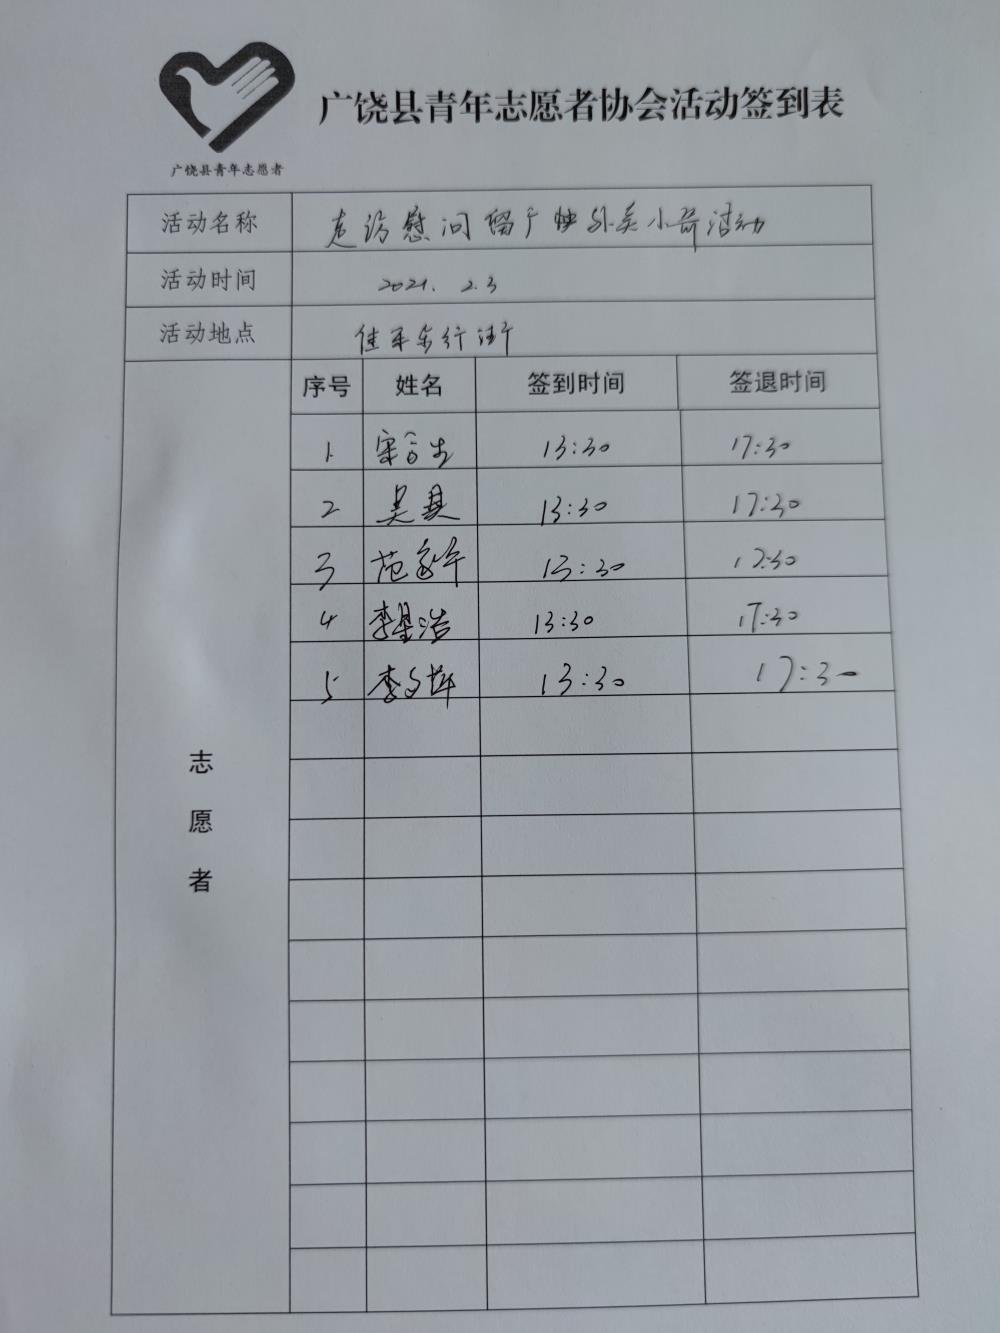 广饶县青年志愿者协会活动签到表
广饶县青年志愿者
活动名称 走访慰问留广快外卖小哥活动
活动时间 2021. 2.3
活动地点 佳乐东行街
序号 姓名 签到时间 签退时间
1 13:30 17:30
2 吴真 13:30 17:30
3 范 13:30 17:30
4 李星浩 13:30 17:30
5 李文 13:30 17:30
志
愿
者